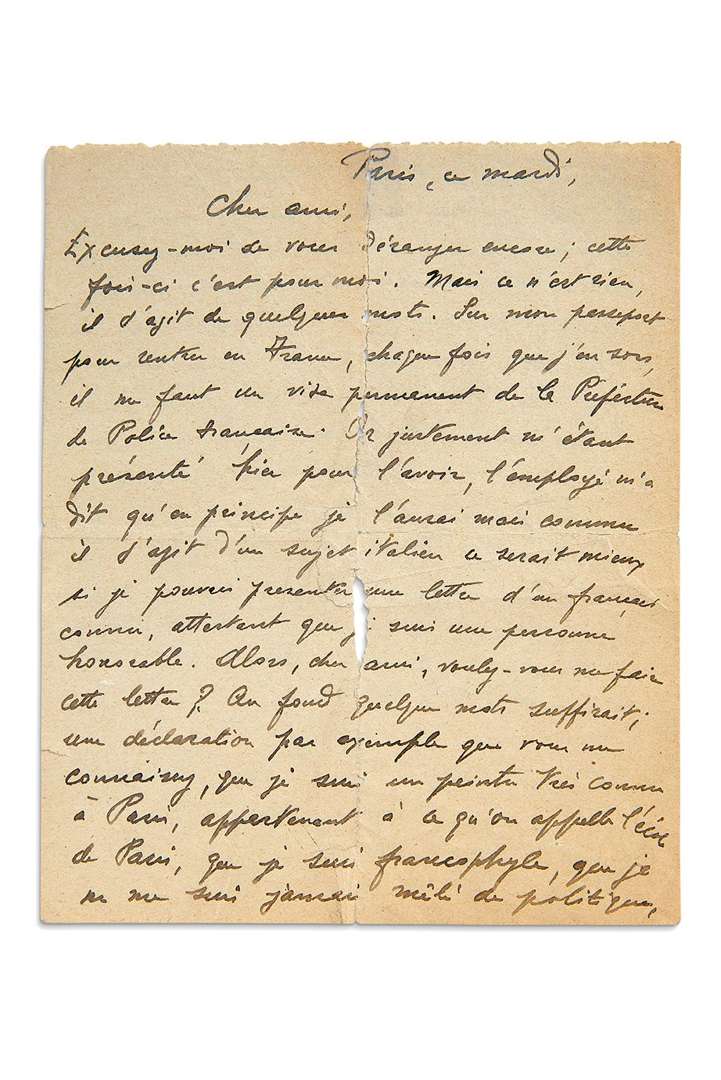 Paris, ce mardi,
Cher ami,
Excusez-moi de vous déranger encore; cette
fois-ci c'est pour moi. Mais ce n'est rien,
il s'agit de quelques mots. Sur mon passeport
pour rentrer en France, chaque fois que j'en sors,
il me faut un visa permanent de la Préfecture
de Police française. Or justement m'étant
présenté hier pour l'avoir, l'employé m'a
dit qu'en principe je l'aurai mais comme
il s'agit d'un sujet italien ce serait mieux
si je pouvais presenter une lettre d'un francais
connu, attestant que je suis une personne
honorable. Alors, cher ami, voulez-vous me faire
cette lettre? Au fond quelques mots suffirait;
une déclaration par exemple que vous me
connaissez, que je suis un peintre très connu
à Paris, appartenant à ce qu'on appelle l'école
de Paris, que je suis francophyle, que je
ne me suis jamais mêlé de politique,